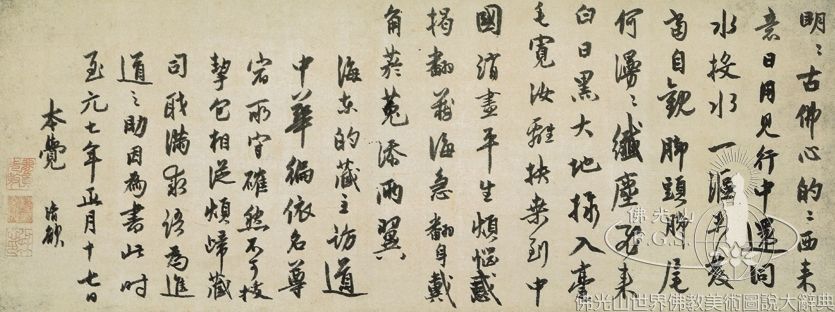 明〻古佛心的〻西来
意日用見行中還同
水投水一漚未發
當自觀脚頭脚尾
何漫〻纖塵不来
白日黑大地撮入
毛寬汝離扶桑到中
國消盡平生煩惱惑
揭翻海急翻身戴
角於菟添兩翼
海東的藏主訪道
中華徧依名尊
宿所守確然不可拔
挈包相從煩歸藏
司職滿求語為進
道之助因為書此時
至元七年正月十七日
本覺 清欲
佛光山
F.G.S.
佛光山世界佛教美術圖說大辭典